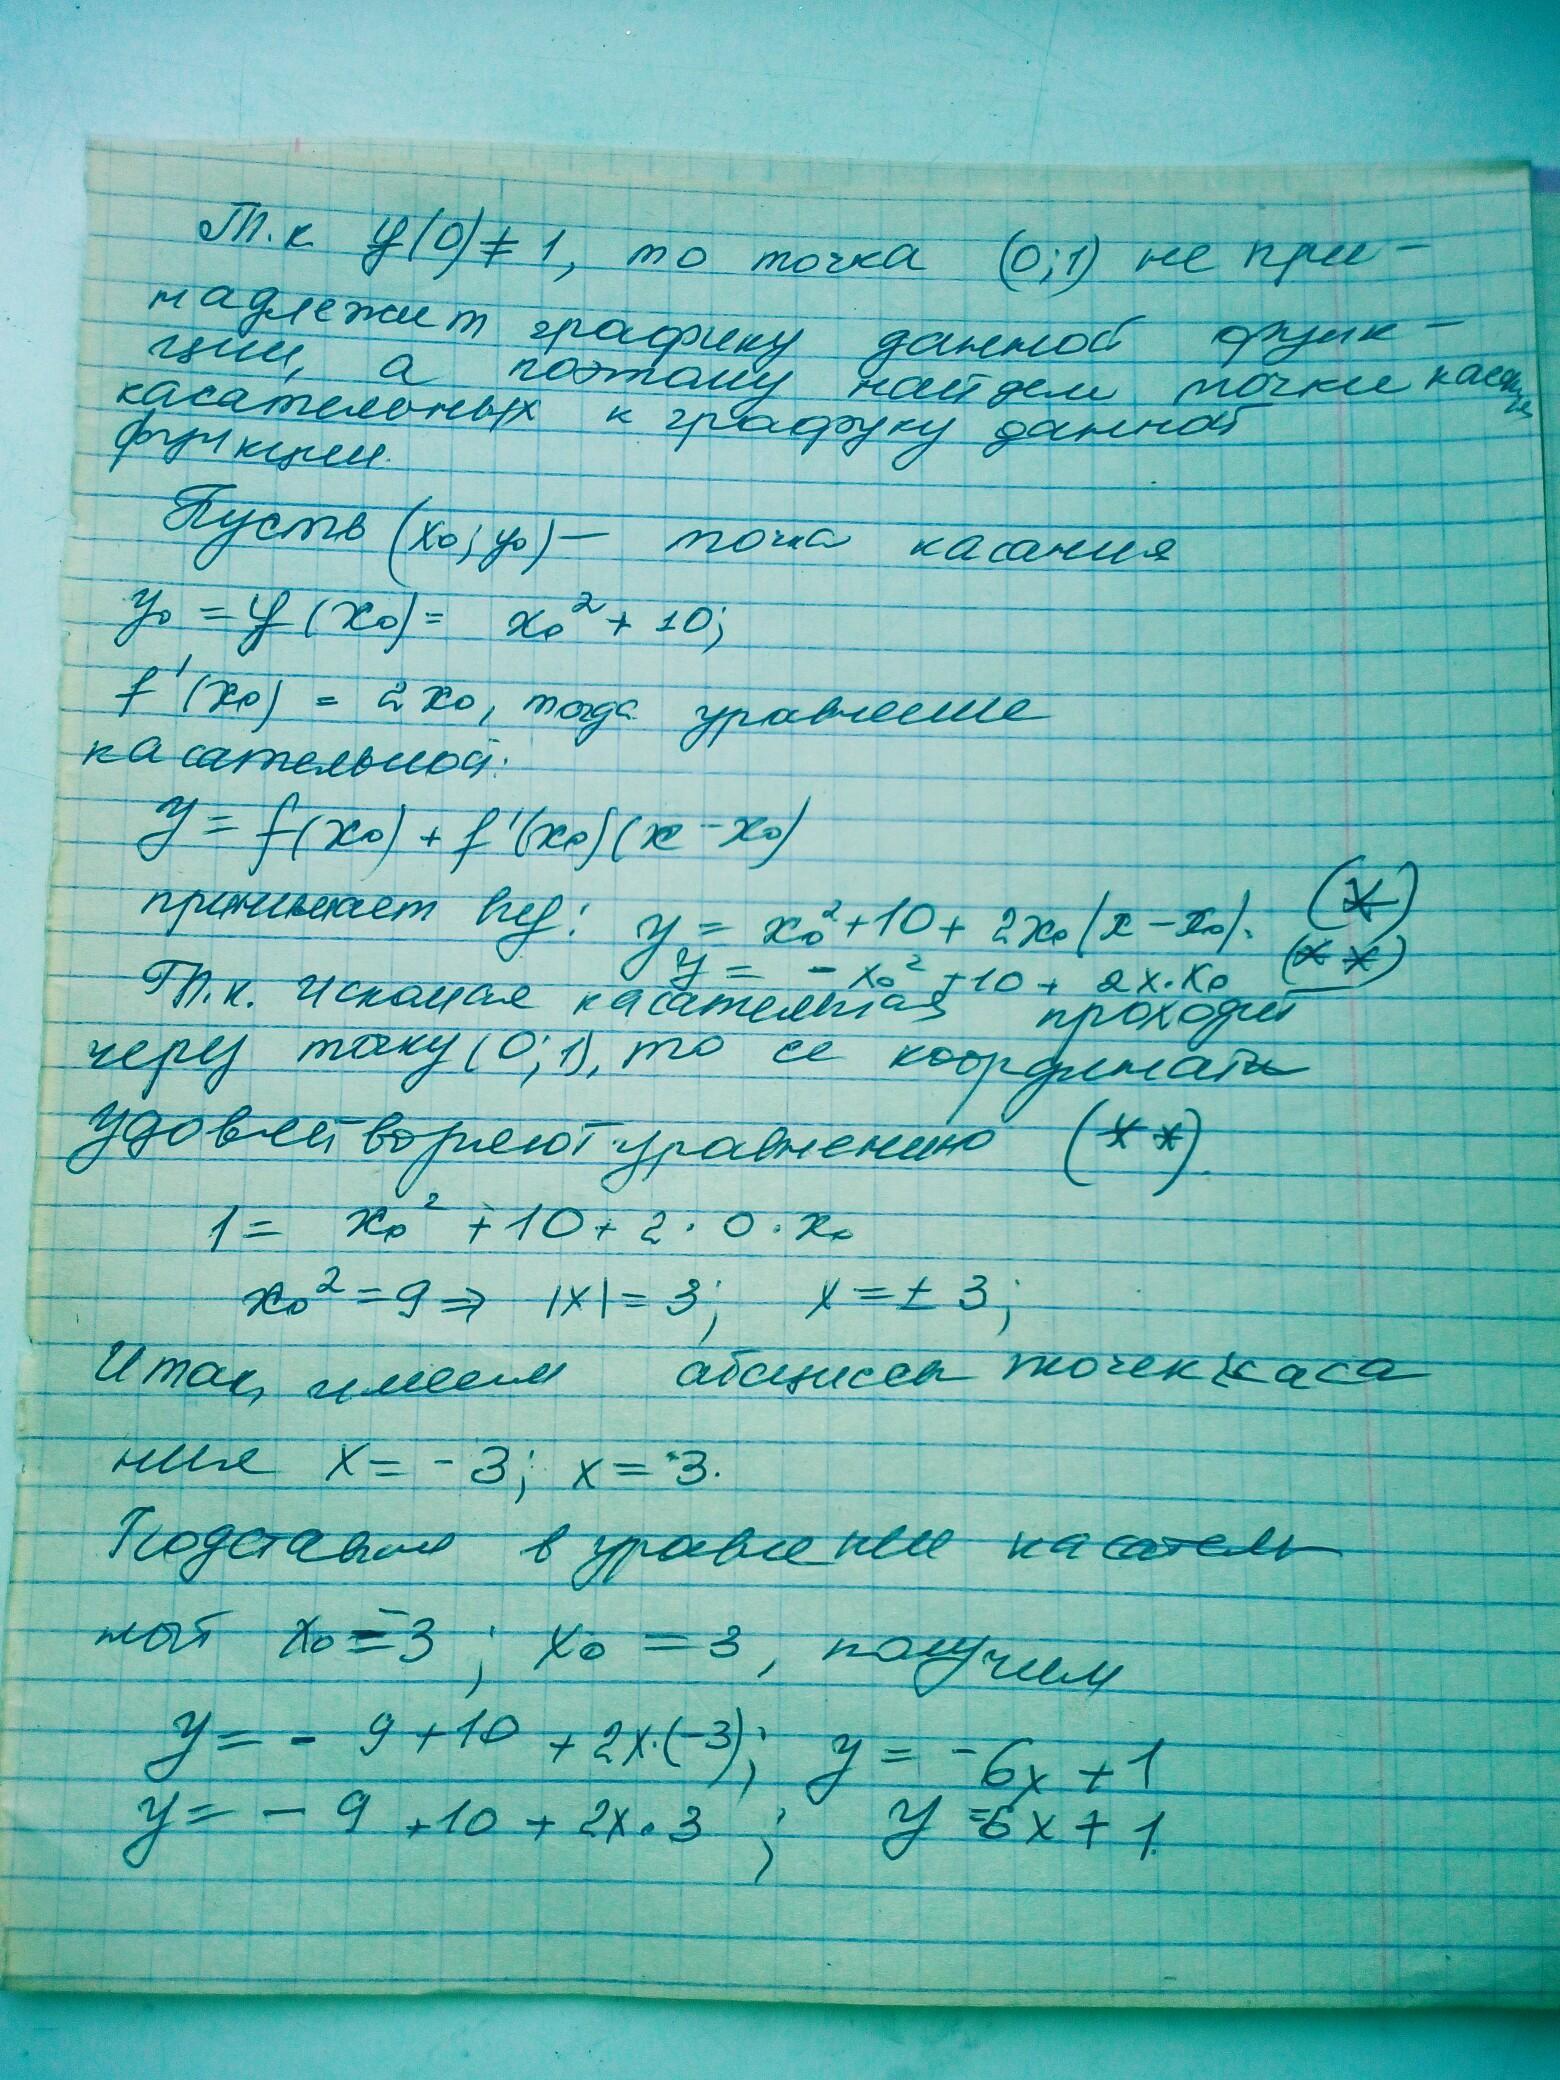 Т.к. y(0)≠1, то точка (0;1) не при-
надлежит графику данной функ-
ции, а поэтому найдем точки
касательных к графику данной
функции.
Пусть (x₀; y₀) — точка касания
y₀ = y(x₀) = x₀² + 10;
f'(x₀) = 2x₀, тогда уравнение
касательной:
y = f(x₀) + f'(x₀)(x - x₀)
принимает вид: y = x₀² + 10 + 2x₀(x - x₀). (*)
y = - x₀² + 10 + 2x·x₀ (**)
Т.к. искомая касательная проходит
через точку (0;1), то ее координаты
удовлетворяют уравнению (**).
1 = x₀² + 10 + 2·0·x₀
x₀² = 9 ⇒ |x| = 3; x = ± 3;
Итак, имеем абсциссы точек каса
ния x = -3; x = 3.
Подставим в уравнение касатель
ной x₀ = -3; x₀ = 3, получим
y = - 9 + 10 + 2x·(-3); y = -6x + 1
y = - 9 + 10 + 2x·3; y = 6x + 1.